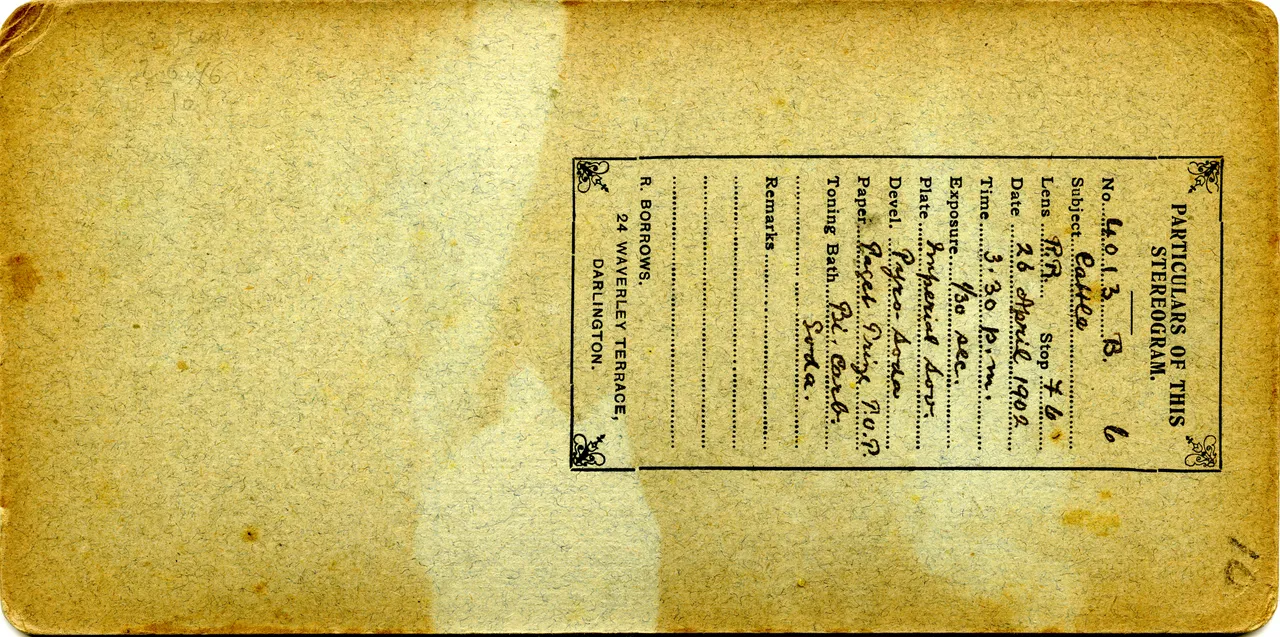 PARTICULARS OF THIS
STEREOGRAM.
No. 4013 B. 6
Subject Cattle
Lens R.R. Stop F 6
Date 26 April 1902
Time 3.30 p.m.
Exposure 1/30 sec.
Plate Imperial Sov.
Devel. Pyro Soda
Paper Paget Prize P.O.P.
Toning Bath Bi. Carb.
Soda.
Remarks
R. BORROWS.
24 WAVERLEY TERRACE,
DARLINGTON.
10